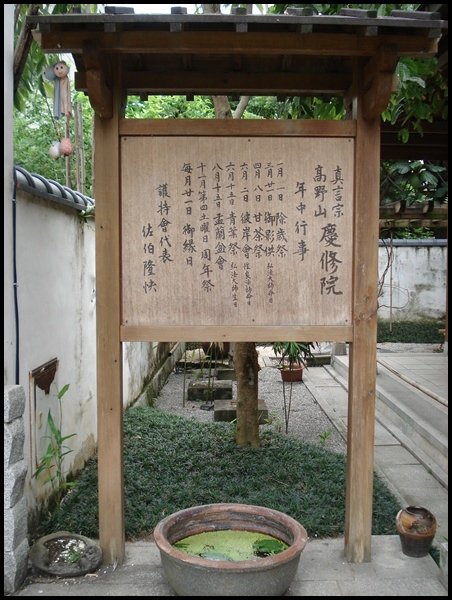 真言宗
高野山 慶修院
年中行事
一月一日 除歲祭
三月廿一日 御影供 弘法大師忌日
四月八日 甘茶祭
六月二日 彼岸會
六月十五日 青葉祭 弘法大師生日
八月十五日 盂蘭盆會
十一月第四土曜日 周年祭
每月廿一日 御緣日
護持會代表
佐伯隆快